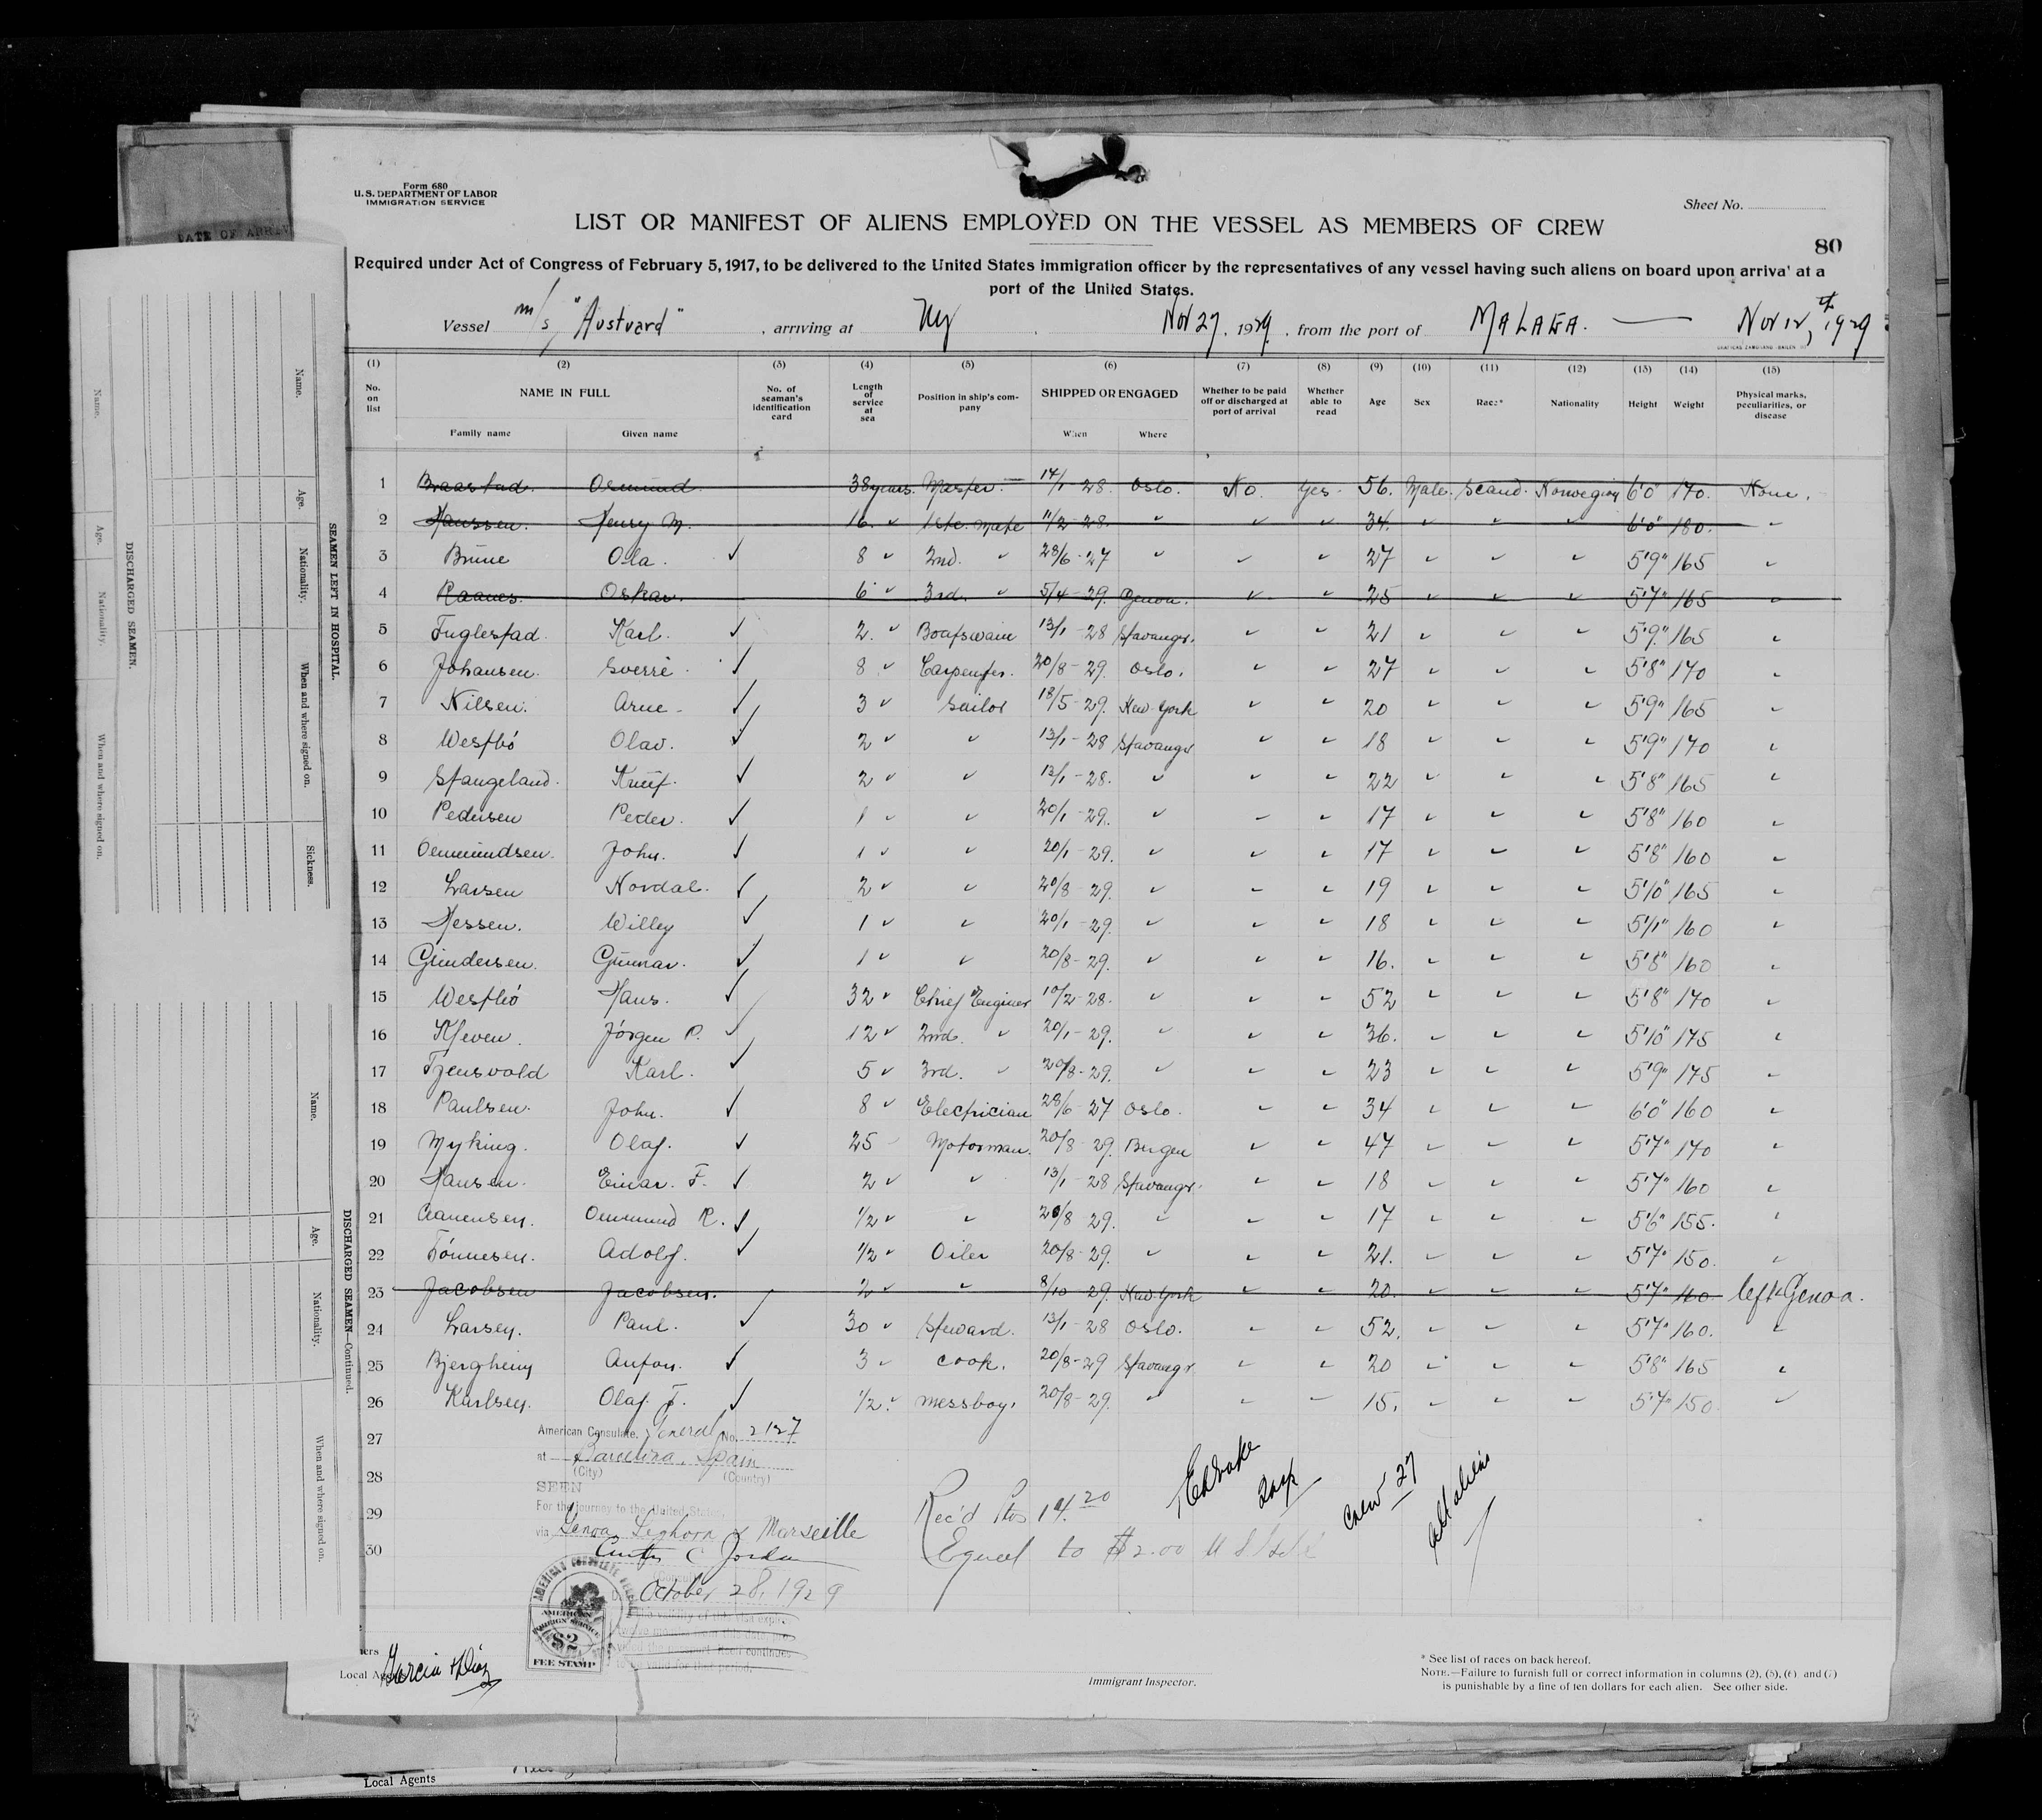 Form 680
U. S. DEPARTMENT OF LABOR
IMMIGRATION SERVICE
Sheet No.
LIST OR MANIFEST OF ALIENS EMPLOYED ON THE VESSEL AS MEMBERS OF CREW
80
Required under Act of Congress of February 5, 1917, to be delivered to the United States immigration officer by the representatives of any vessel having such aliens on board upon arrival at a
port of the United States.
Vessel m/s "Austvard", arriving at Ny Nov 27, 1929, from the port of MALAGA. Nov 12th, 1929
(1) (2) (3) (4) (5) (6) (7) (8) (9) (10) (11) (12) (13) (14) (15)
No. on list NAME IN FULL No. of seaman's identification card Length of service at sea Position in ship's company SHIPPED OR ENGAGED Whether to be paid off or discharged at port of arrival Whether able to read Age Sex Race* Nationality Height Weight Physical marks, peculiarities, or disease
Family name Given name When Where
1 Braastad. Osmund. 38 years. Master. 14/1-28. Oslo. No. Yes. 56. Male. Scand. Norwegian 6'0" 170. None.
2 Hanssen. Henry M. 16. " 1ste. Mate 11/2-28. " " " 34. " " " 6'0" 180. "
3 Brune Ola. ✓ 8 " 2nd. " 28/6-27 " " " 27 " " " 5'9" 165 "
4 Raanes. Oskar. 6 " 3rd. " 5/4-29. Genoa. " " 25 " " " 5'7" 165 "
5 Fuglestad. Karl. ✓ 2. " Boatswain 13/1-28 Stavanger. " " 21 " " " 5'9." 165 "
6 Johansen. Sverre. ✓ 8 " Carpenter. 20/8-29. Oslo. " " 27 " " " 5'8" 170 "
7 Nilsen. Arne. ✓ 3 " Sailor 18/5-29. New-York " " 20 " " " 5'9" 165 "
8 Westbö Olav. ✓ 2 " " 13/1-28 Stavangr " " 18 " " " 5'9" 170 "
9 Stangeland. Knut. ✓ 2 " " 13/1-28. " " " 22 " " " 5'8" 165 "
10 Pedersen Peder. ✓ 1 " " 20/1-29. " " " 17 " " " 5'8" 160 "
11 Oemundsen. John. ✓ 1 " " 20/1-29. " " " 17 " " " 5'8" 160 "
12 Larsen Nordal. ✓ 2 " " 20/8-29. " " " 19 " " " 5'10" 165 "
13 Hessen. Willey ✓ 1 " " 20/1-29. " " " 18 " " " 5'11" 160 "
14 Gundersen. Gunnar. ✓ 1 " " 20/8-29. " " " 16. " " " 5'8" 160 "
15 Westbö Hans. ✓ 32 " Chief Enginer 10/2-28. " " " 52 " " " 5'8" 170 "
16 Kleven. Jörgen P. ✓ 12 " 2nd. " 20/1-29. " " " 36. " " " 5'10" 175 "
17 Tjensvold Karl. ✓ 5 " 3rd. " 20/8-29. " " " 23 " " " 5'9" 175 "
18 Paulsen. John. ✓ 8 " Electrician 28/6-27 Oslo. " " 34 " " " 6'0" 160 "
19 Myking. Olaf. ✓ 25 " Motorman. 20/8-29. Bergen " " 47 " " " 5'7" 170 "
20 Hansen. Einar. F. ✓ 2 " " 13/1-28 Stavangr. " " 18 " " " 5'7" 160 "
21 Aanensen. Omund R. ✓ 1/2 " " 20/8 29. " " " 17 " " " 5'6" 155. "
22 Tönnesen. Adolf. ✓ 1/2 " Oiler 20/8-29. " " " 21. " " " 5'7" 150. "
23 Jacobsen Jacobsen. 2 " " 8/10-29. New-York " " 20. " " " 5'7" 160. left Genoa.
24 Larsen. Paul. ✓ 30 " Steward. 13/1-28 Oslo. " " 52. " " " 5'7" 160. "
25 Bjergheim Anton. ✓ 3 " Cook. 20/8-29 Stavangr " " 20 " " " 5'8" 165 "
26 Karlsen. Olaf. T. ✓ 1/2. " messboy. 20/8-29. " " " 15. " " " 5'7" 150. "
27
28
29
30
American Consulate General No. 2127
at Barcelona, Spain
(City) (Country)
SEEN
For the journey to the United States,
via Genoa, Leghorn & Marseille
Curtis C Jordan
October 28, 1929
Rec'd Pts 14.20
Equal to $2.00 U S
Crew 27
All aliens
AMERICAN
FOREIGN SERVICE
$2
FEE STAMP
Local Agents Garcia & Diaz
Immigrant Inspector.
* See list of races on back hereof.
NOTE.—Failure to furnish full or correct information in columns (2), (5), (6) and (7)
is punishable by a fine of ten dollars for each alien. See other side.
Local Agents
SEAMEN LEFT IN HOSPITAL.
Name. Age. Nationality. When and where signed on. Sickness.
DISCHARGED SEAMEN.
Name. Age. Nationality. When and where signed on.
DISCHARGED SEAMEN—Continued.
Name. Age. Nationality. When and where signed on.